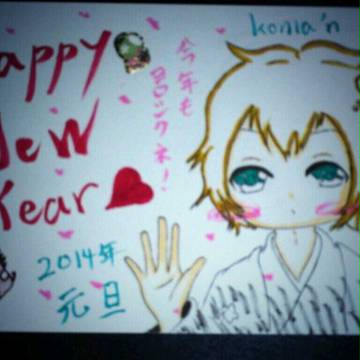 Happy
New
Year
konia'n
今年も
呂シクネ!
2014年
元旦